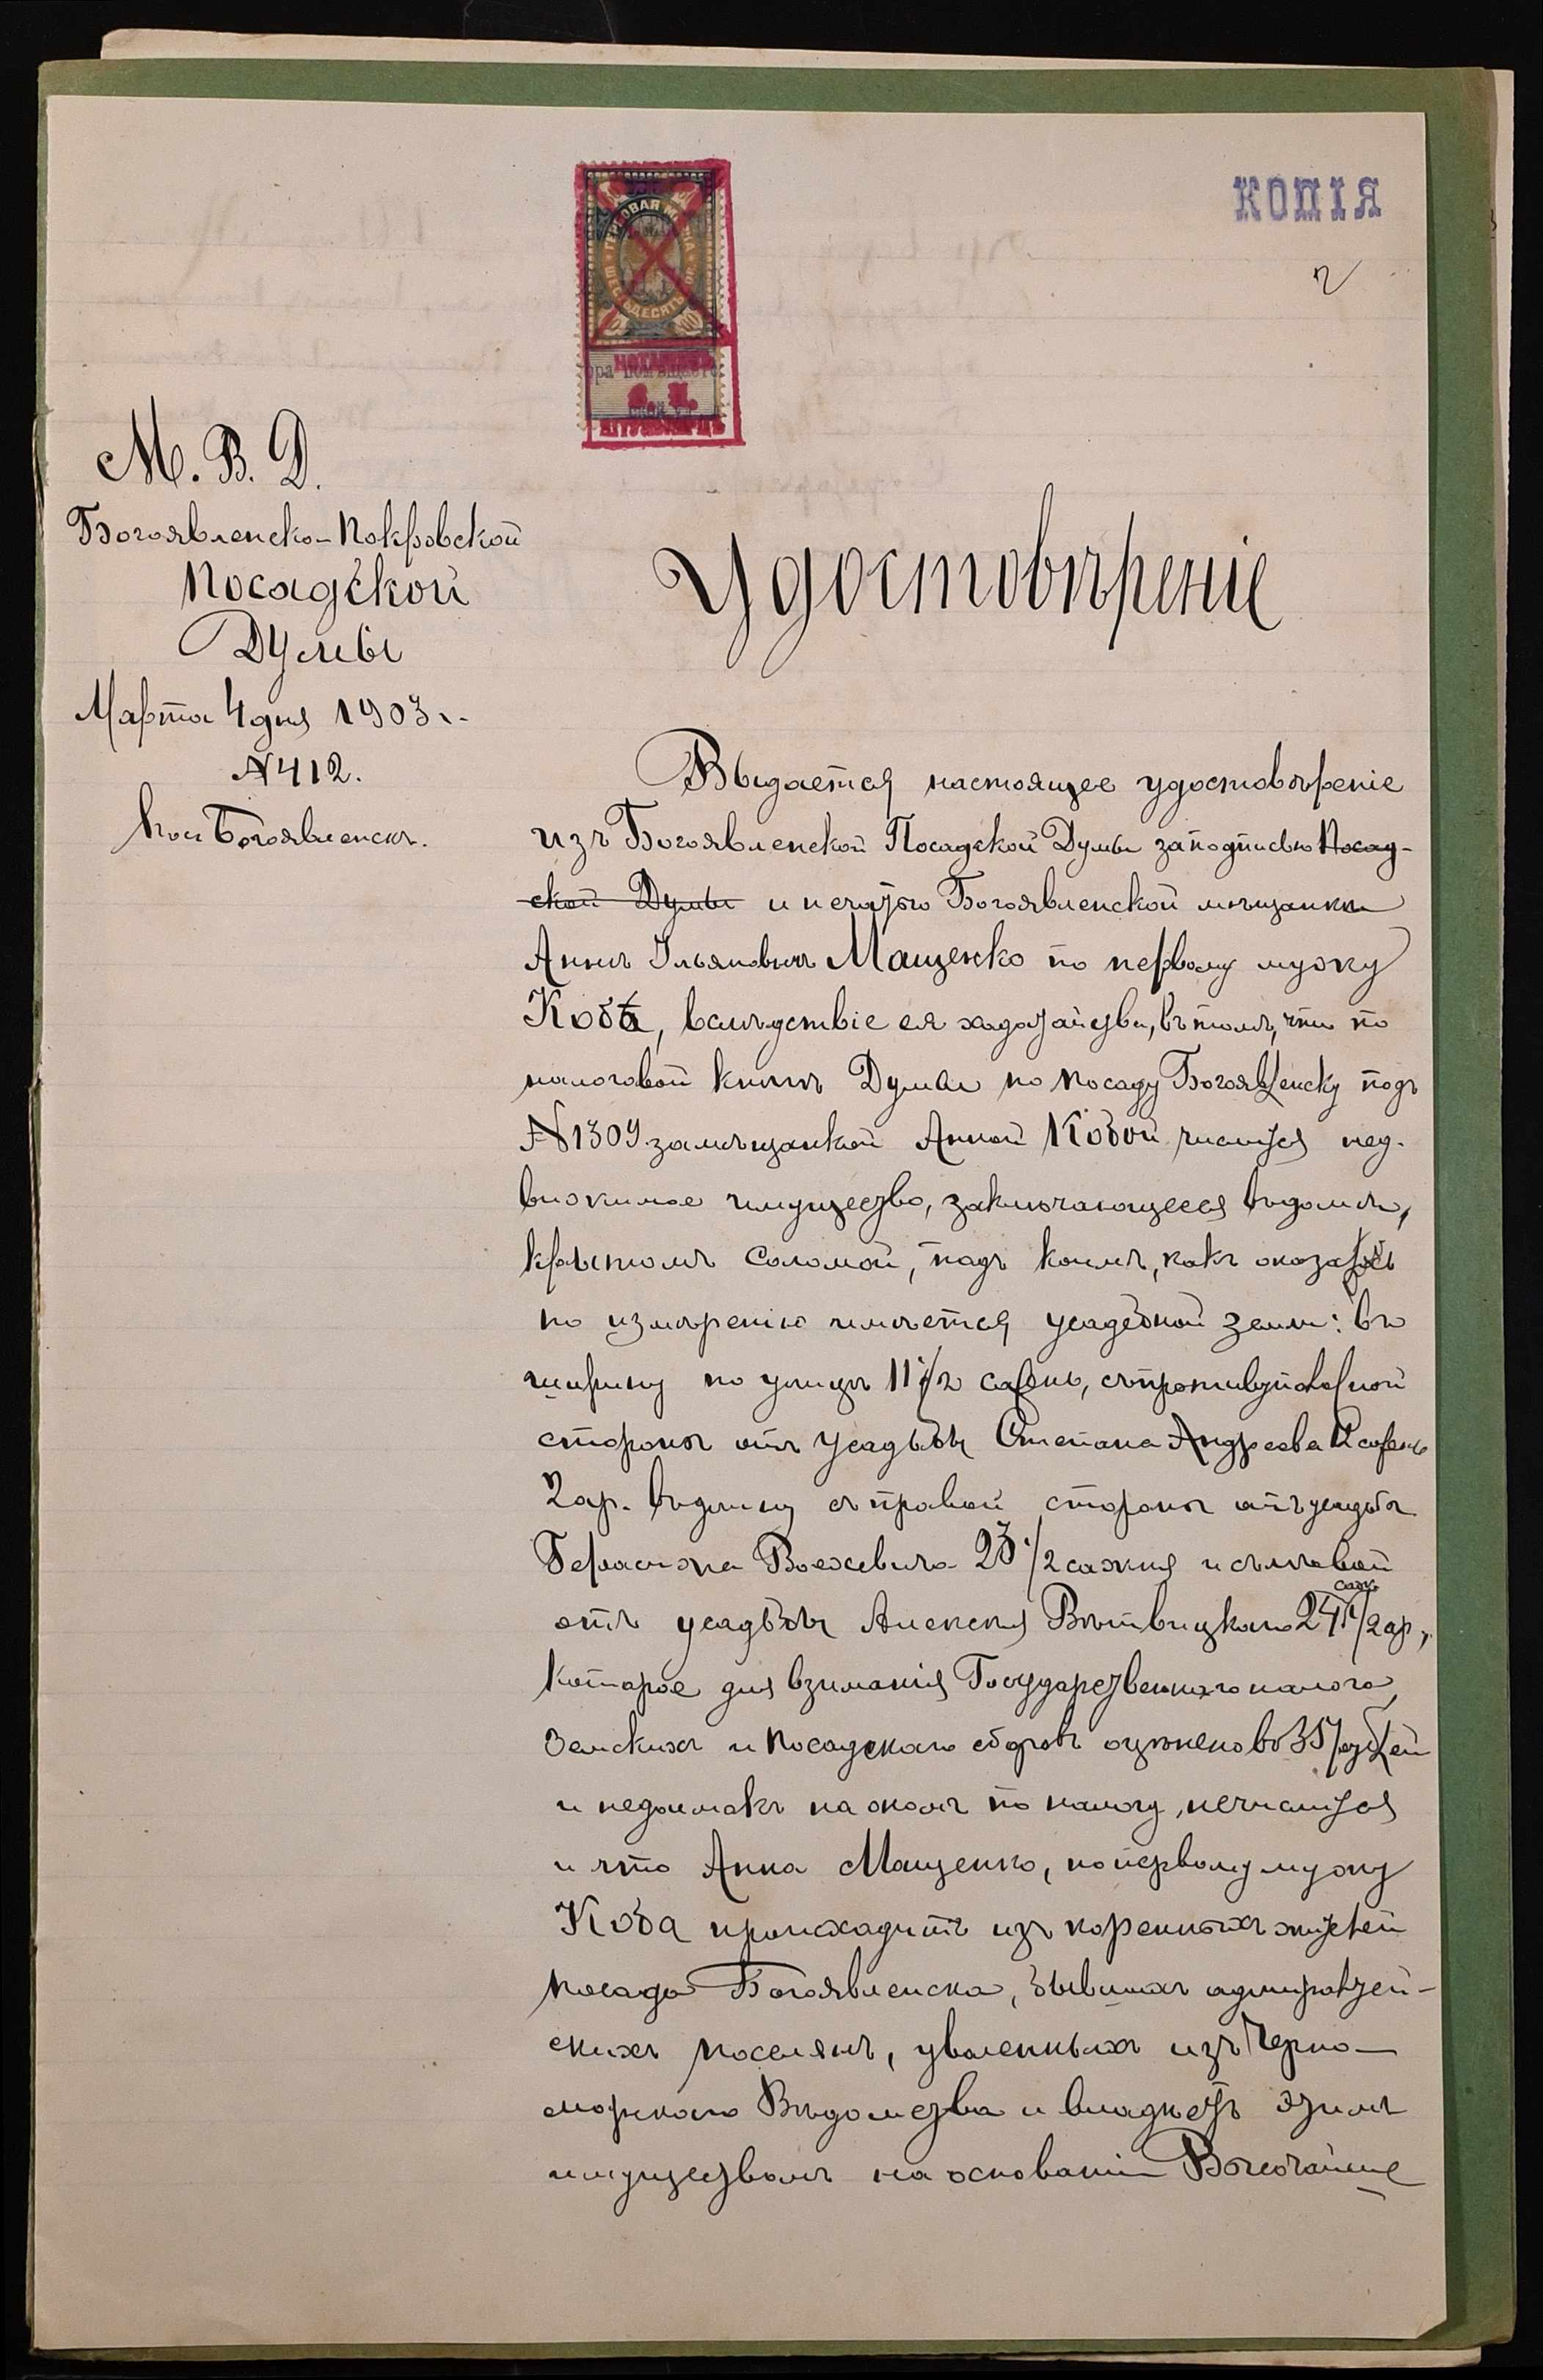 КОПІЯ
ГЕРБОВАЯ МАРКА
ШЕСТЬДЕСЯТЪ КОП.
2
М. В. Д.
Богоявленско-Покровской
Посадской
Думы
Марта 4 дня 1903 г.
№ 412.
Пос. Богоявленскъ.
Удостовѣреніе
Выдается настоящее удостовѣреніе
изъ Богоявленской Посадской Думы за подписью Посад-
ской Думы и печатью Богоявленской мѣщанки
Аннѣ Ильяновнѣ Мащенко по первому мужу
Коба, вслѣдствіе ея ходатайства, въ томъ, что по
налоговой книгѣ Думы по посаду Богоявленску подъ
№ 1309 за мѣщанкой Анной Кобой числится нед-
вижимое имущество, заключающееся въ домѣ,
крытомъ соломой, подъ коимъ, какъ оказалось
по измѣренію имѣется усадебной земли: въ
ширину по улицѣ 11 1/2 сажень, съ противуположной
стороны отъ усадьбы Степана Андреева 12 сажень
2 ар. въ длину съ правой стороны отъ усадьбы
Герасима 23 1/2 сажня и съ лѣвой
отъ усадьбы Алексѣя Вѣтвицкаго 24 саж. 1/2 ар.,
которое для взиманія Государственнаго налога,
Земскихъ и посадскаго сборовъ оцѣнено въ 35 рублей
и недоимокъ на ономъ по налогу, не числится
и что Анна Мащенко, по первому мужу
Коба происходитъ изъ коренныхъ жителей
посада Богоявленска, бывшихъ адмиралтей-
скихъ поселянъ, уволенныхъ изъ Черно-
морскаго Вѣдомства и владѣетъ этимъ
имуществомъ на основаніи Высочайше